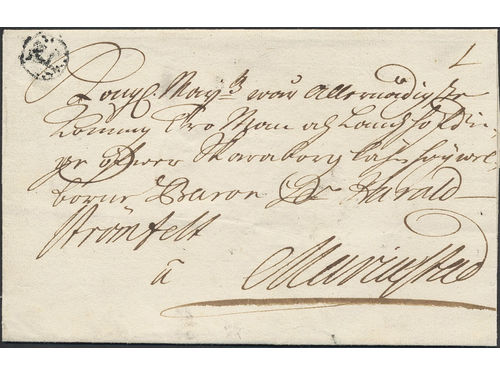 L
Kongl. Maj:ts wår Allernådigste
Konungs Tro Man och Landshöfdin-
ge öfwer Skaraborg Lähn Höywel-
borne Baron Hr Harald
Strömfelt
á Mariæstad